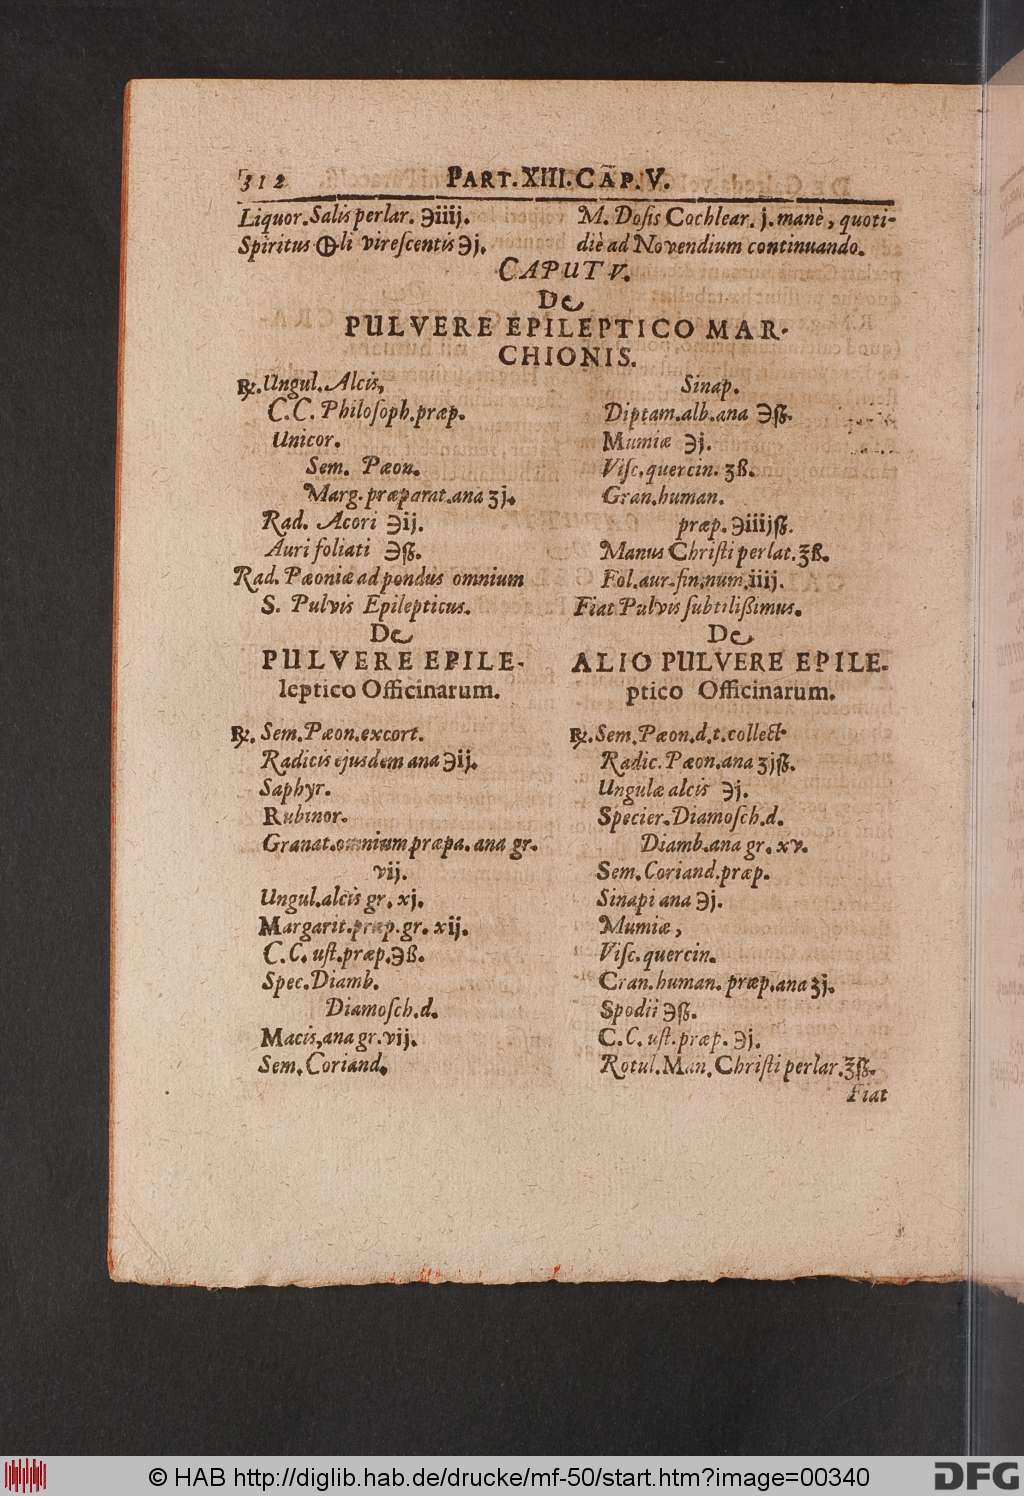 312 PART.XIII.CAP.V.
Liquor.Salis perlar. ℈iiij.
Spiritus 🜕li virescentis ℈j.
M. Dosis Cochlear. j. manè, quoti-
diè ad Novendium continuando.
CAPUT V.
De
PULVERE EPILEPTICO MAR-
CHIONIS.
℞. Ungul. Alcis,
C.C. Philosoph.præp.
Unicor.
Sem. Pæon.
Marg.præparat.ana ʒj.
Rad. Acori ℈ij.
Auri foliati ℈ß.
Rad. Pæoniæ ad pondus omnium
S. Pulvis Epilepticus.
De
PULVERE EPILE-
leptico Officinarum.
℞. Sem.Pæon.excort.
Radicis ejusdem ana ℈ij.
Saphyr.
Rubinor.
Granat.omnium præpa. ana gr.
vij.
Ungul.alcis gr. xj.
Margarit.præp.gr. xij.
C.C. ust.præp.℈ß.
Spec.Diamb.
Diamosch.d.
Macis,ana gr.vij.
Sem.Coriand.
Sinap.
Diptam.alb.ana ℈ß.
Mumiæ ℈j.
Visc.quercin. ʒß.
Gran.human.
præp.℈iiijß.
Manus Christi perlat.℥ß.
Fol.aur.fin.num.iiij.
Fiat Pulvis subtilißimus.
De
ALIO PULVERE EPILE-
ptico Officinarum.
℞. Sem.Pæon.d.t.collect
Radic. Pæon.ana ʒjß.
Ungulæ alcis ℈j.
Specier.Diamosch.d.
Diamb.ana gr. xv.
Sem.Coriand.præp.
Sinapi ana ℈j.
Mumiæ,
Visc.quercin.
Cran.human. præp.ana ʒj.
Spodii ℈ß.
C.C. ust.præp. ℈j.
Rotul.Man.Christi perlar.℥ß.
Fiat
© HAB http://diglib.hab.de/drucke/mf-50/start.htm?image=00340
DFG